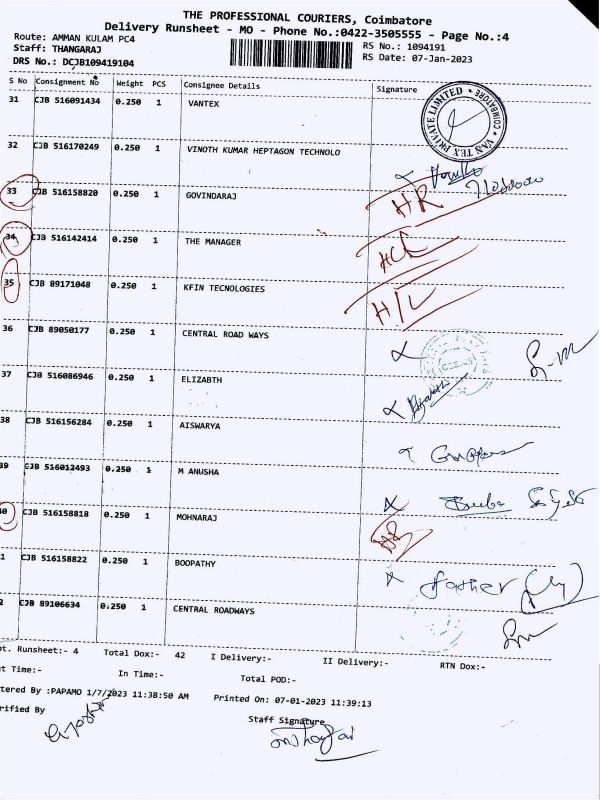 THE PROFESSIONAL COURIERS, Coimbatore
Delivery Runsheet - MO - Phone No.:0422-3505555 - Page No.:4
Route: AMMAN KULAM PC4
RS No.: 1094191
Staff: THANGARAJ
RS Date: 07-Jan-2023
DRS No.: DCJB109419104
S No Consignment No Weight PCS Consignee Details Signature
31 CJB 516091434 0.250 1 VANTEX
VAN TEX PRIVATE LIMITED * COIMBATORE *
32 CJB 516170249 0.250 1 VINOTH KUMAR HEPTAGON TECHNOLO
33 CJB 516158820 0.250 1 GOVINDARAJ
34 CJB 516142414 0.250 1 THE MANAGER
35 CJB 89171048 0.250 1 KFIN TECNOLOGIES H/L
36 CJB 89050177 0.250 1 CENTRAL ROAD WAYS
37 CJB 516086946 0.250 1 ELIZABTH
38 CJB 516156284 0.250 1 AISWARYA
39 CJB 516012493 0.250 1 M ANUSHA
40 CJB 516158818 0.250 1 MOHNARAJ
1 CJB 516158822 0.250 1 BOOPATHY father
2 CJB 89106634 0.250 1 CENTRAL ROADWAYS
t. Runsheet:- 4 Total Dox:- 42 I Delivery:- II Delivery:- RTN Dox:-
t Time:- In Time:- Total POD:-
tered By :PAPAMO 1/7/2023 11:38:50 AM Printed On: 07-01-2023 11:39:13
rified By
Staff Signature